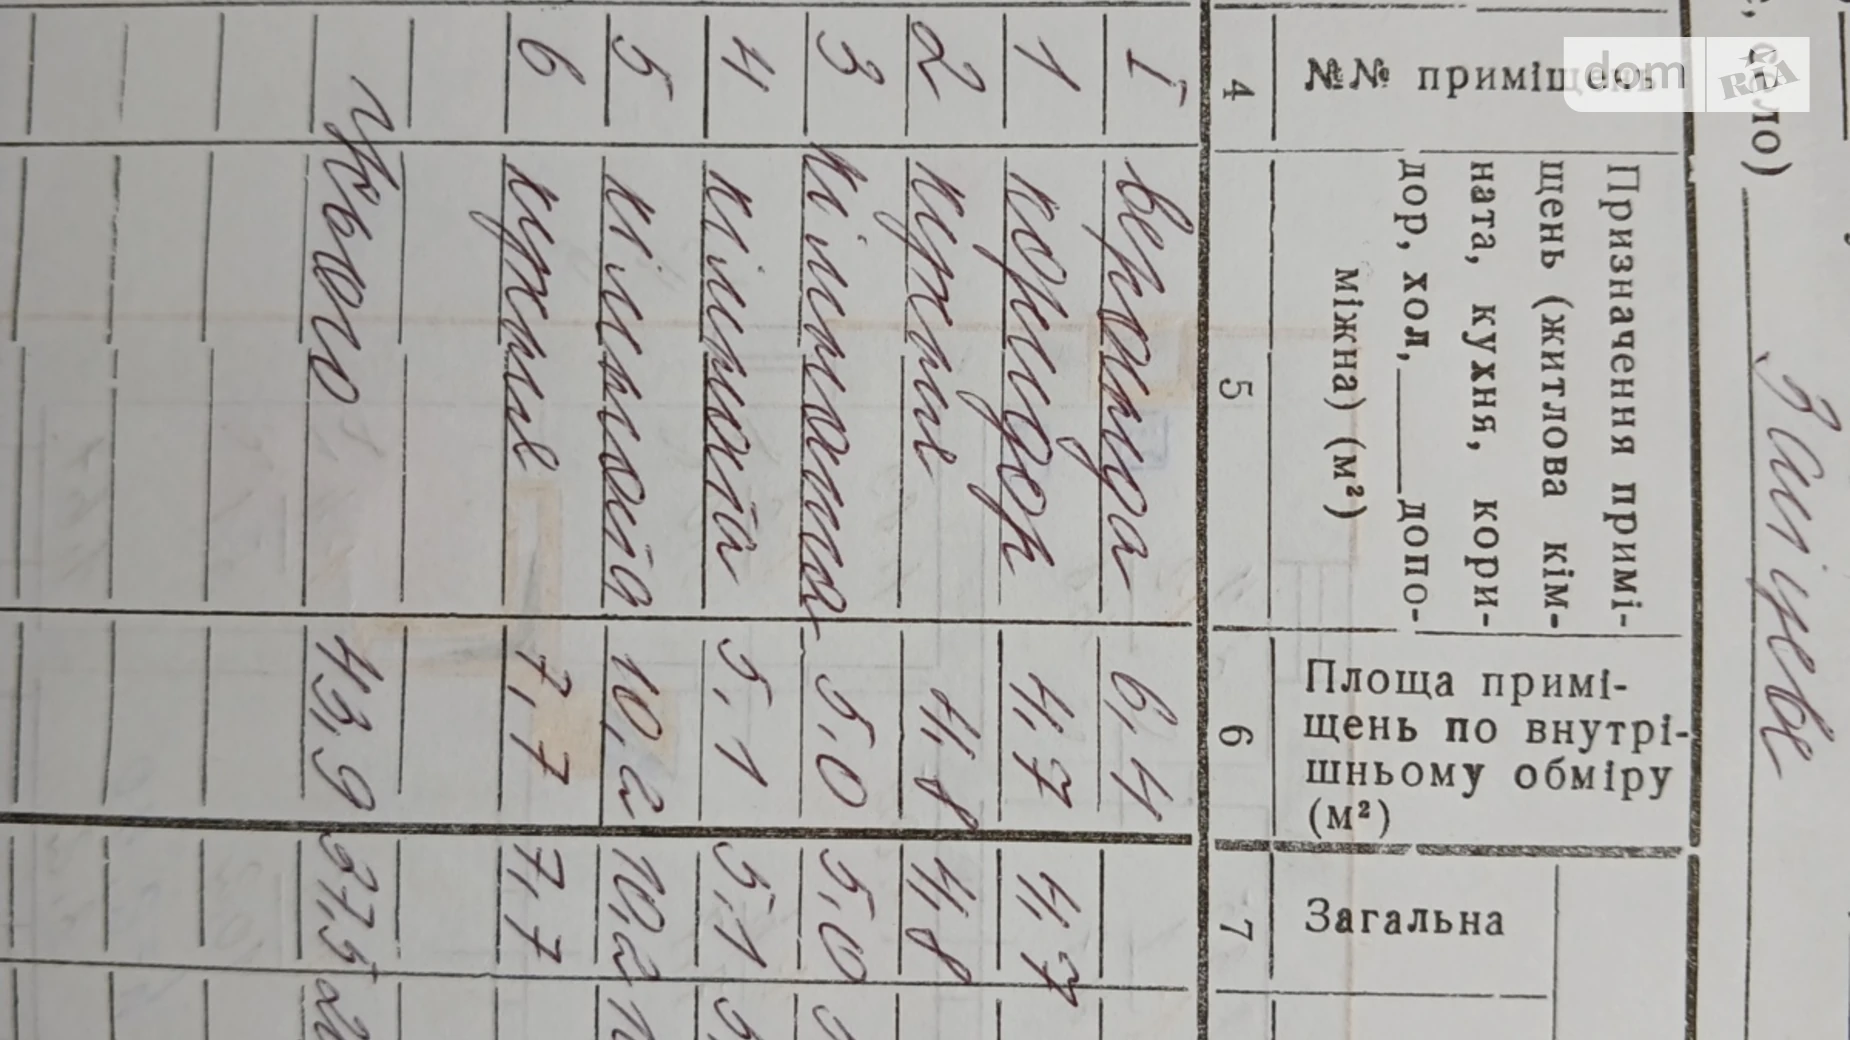 , село) Зачіцьве
№№ приміщень
Призначення примі-
щень (житлова кім-
ната, кухня, кори-
дор, хол, ____ допо-
міжна) (м²)
Площа примі-
щень по внутрі-
шньому обміру
(м²)
Загальна
4 5 6 7
I веранда 6,4
1 коридор 4,7 4,7
2 кухня 4,8 4,8
3 кімната 5,0 5,0
4 кімната 5,1 5,1
5 кімната 10,2 10,2
6 кухня 7,7 7,7
Усього 43,9 37,5
dom RIA